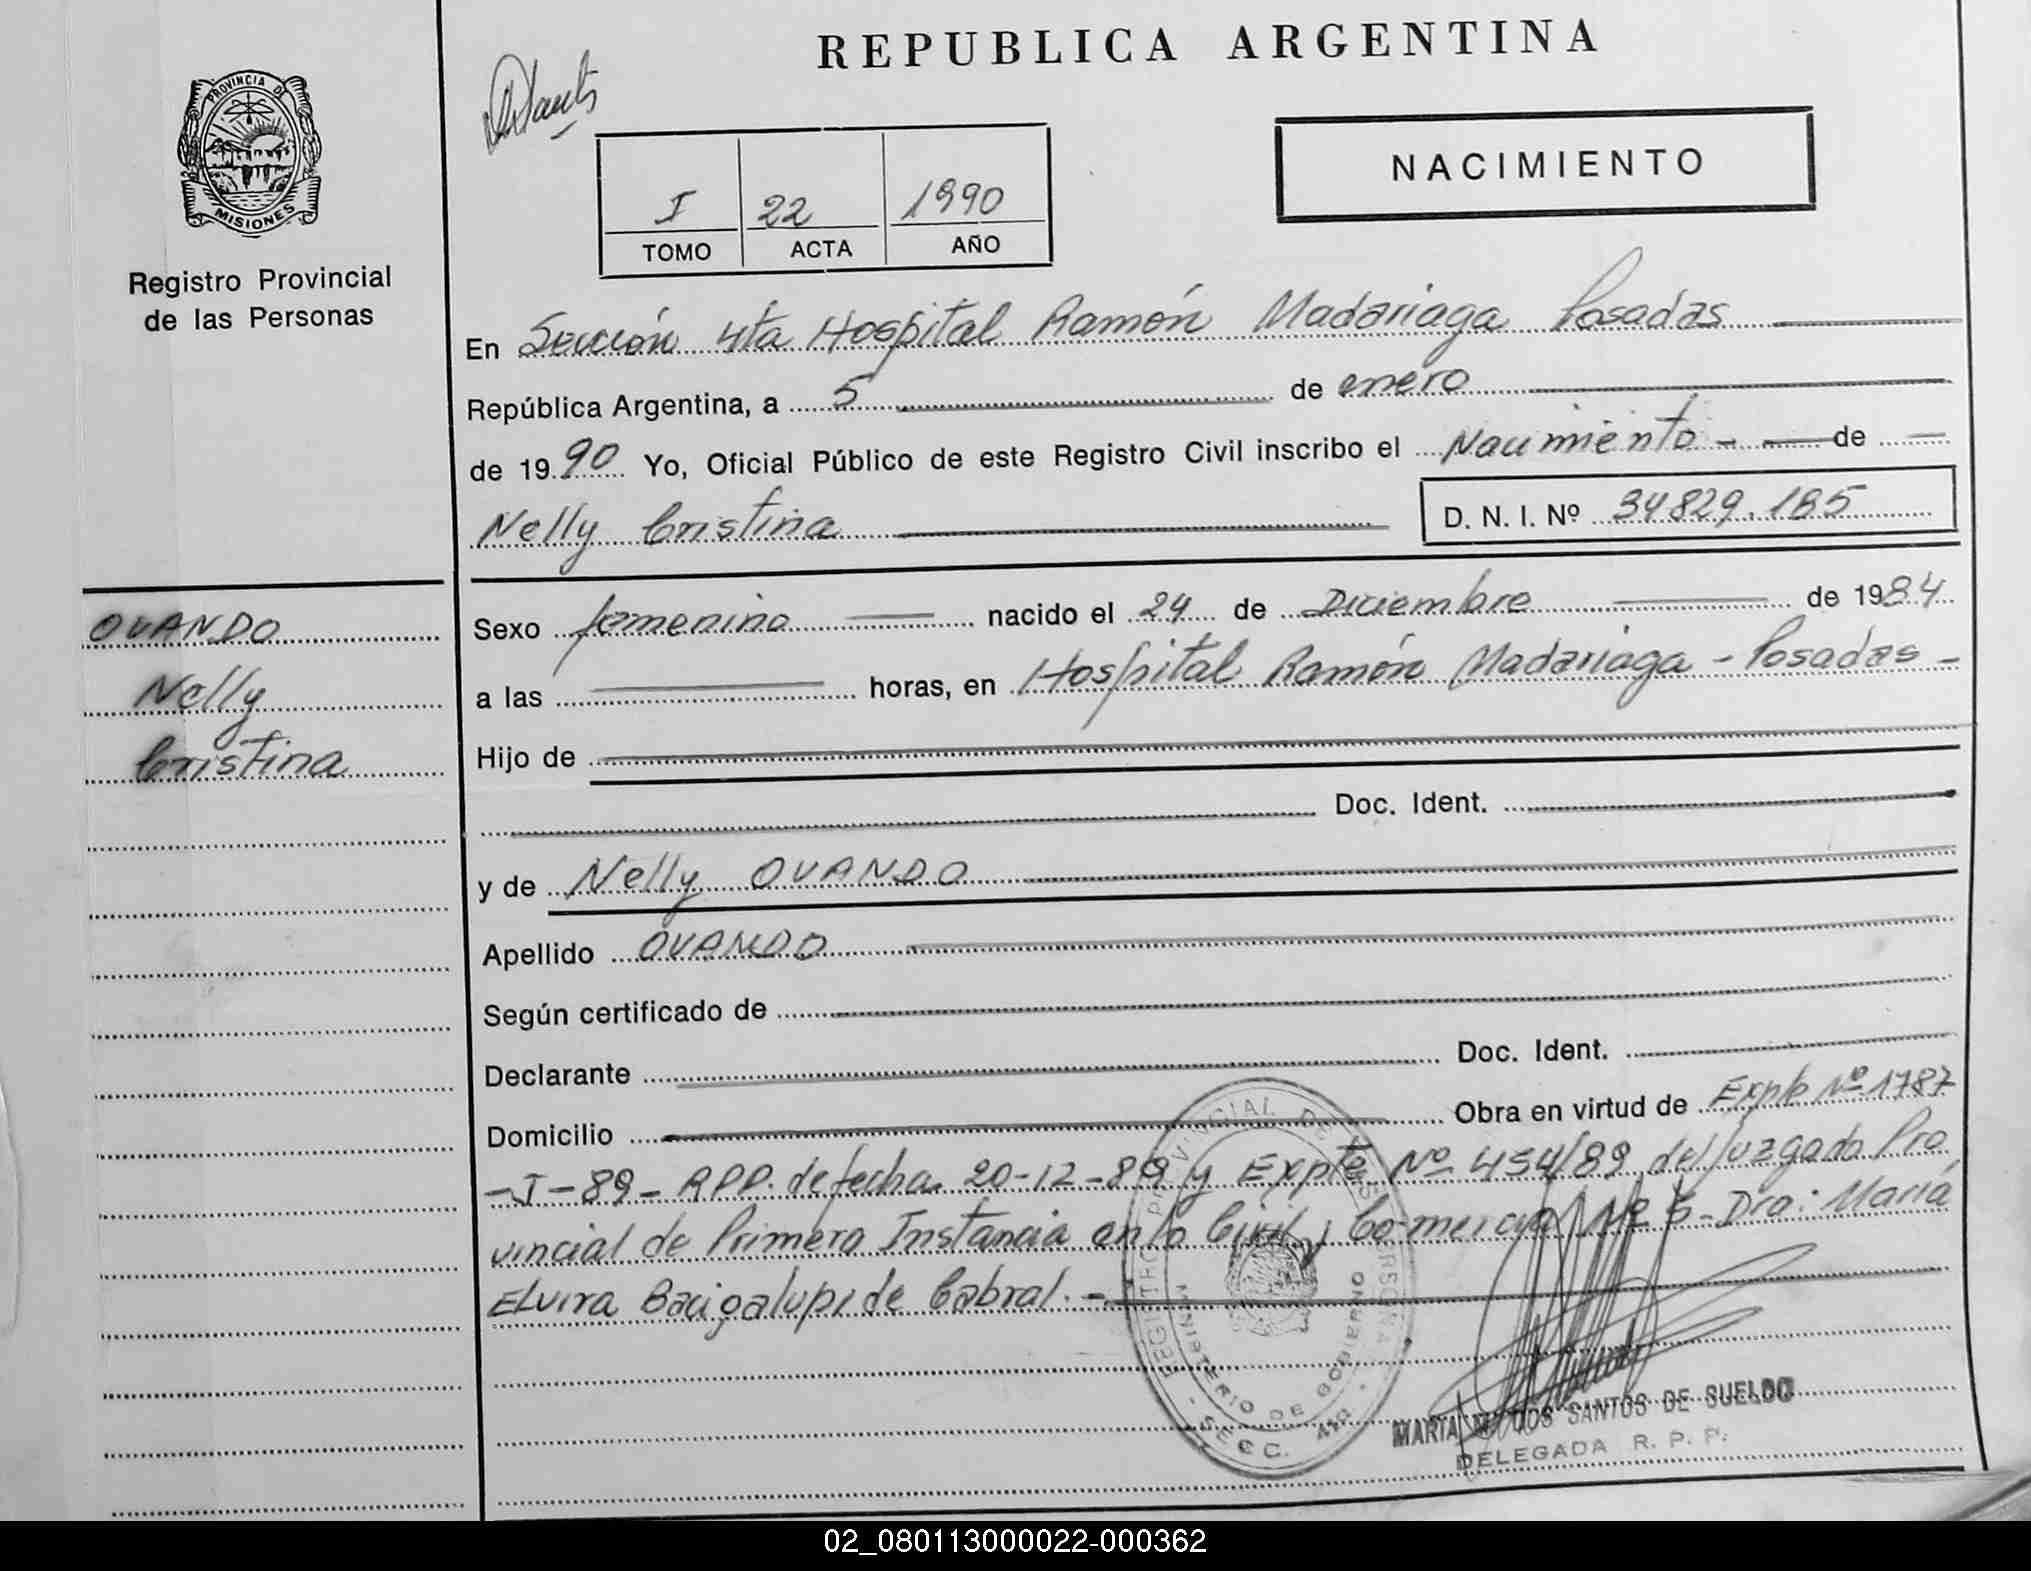 REPUBLICA ARGENTINA
PROVINCIA DE
MISIONES
Registro Provincial
de las Personas
NACIMIENTO
I 22 1990
TOMO ACTA AÑO
En Sección 4ta Hospital Ramón Madariaga Posadas
República Argentina, a 5 de enero
de 1990 Yo, Oficial Público de este Registro Civil inscribo el Nacimiento - de
Nelly Cristina D. N. I. Nº 34829.185
OVANDO
Nelly
Cristina
Sexo femenino nacido el 24 de Diciembre de 1984
a las horas, en Hospital Ramón Madariaga - Posadas -
Hijo de
Doc. Ident.
y de Nelly OVANDO
Apellido OVANDO
Según certificado de
Declarante Doc. Ident.
Domicilio Obra en virtud de Expte Nº 1787
- I - 89 - RPP. de fecha 20-12-89 y Expte Nº 454/89 del Juzgado Pro
vincial de Primera Instancia en lo Civil y Comercial Nº 5 - Dra: María
Elvira Bacigalupi de Cabral. -
REGISTRO PROVINCIAL DE LAS PERSONAS
MINISTERIO DE GOBIERNO
SECC. 4ta
MARIA DOS SANTOS DE SUELDO
DELEGADA R. P. P.
02_080113000022-000362